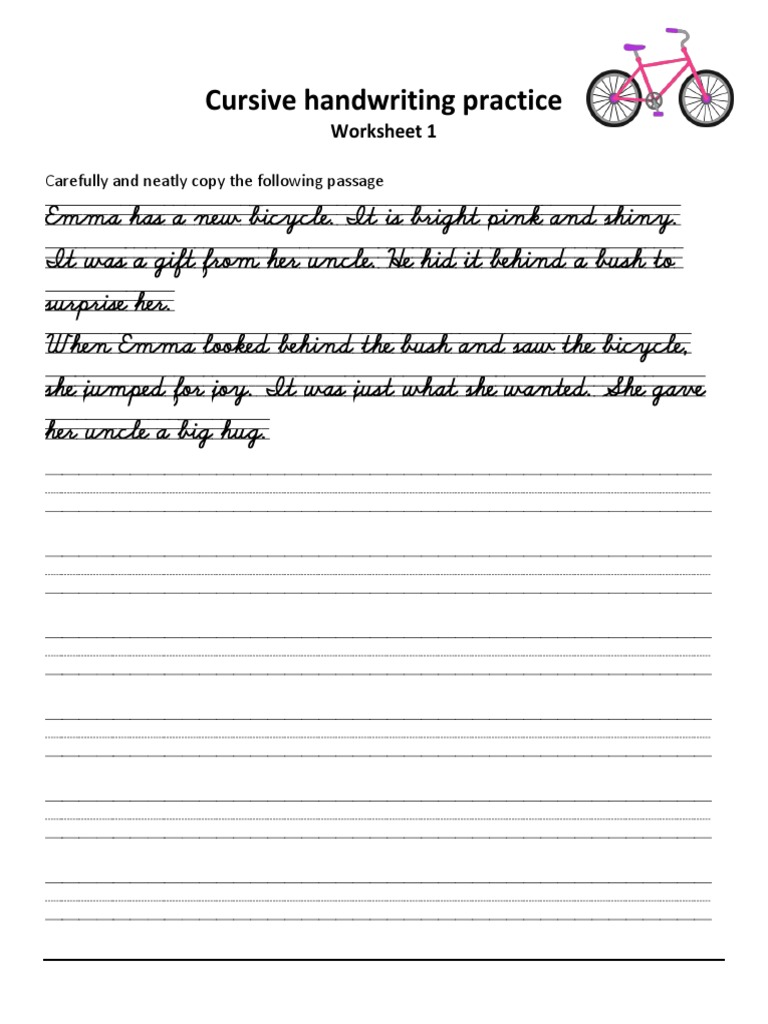 Cursive handwriting practice
Worksheet 1
Carefully and neatly copy the following passage
Emma has a new bicycle. It is bright pink and shiny.
It was a gift from her uncle. He hid it behind a bush to
surprise her.
When Emma looked behind the bush and saw the bicycle,
she jumped for joy. It was just what she wanted. She gave
her uncle a big hug.